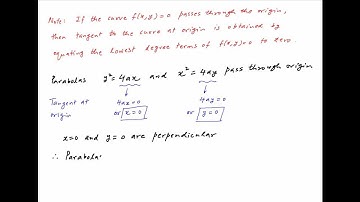 Note: If the curve f(x,y)=0 passes through the origin,
then tangent to the curve at origin is obtained by
equating the lowest degree terms of f(x,y)=0 to zero.
Parabolas y²=4ax and x²=4ay pass through origin
Tangent at 4ax=0 4ay=0
origin or x=0 or y=0
x=0 and y=0 are perpendicular
∴ Parabola